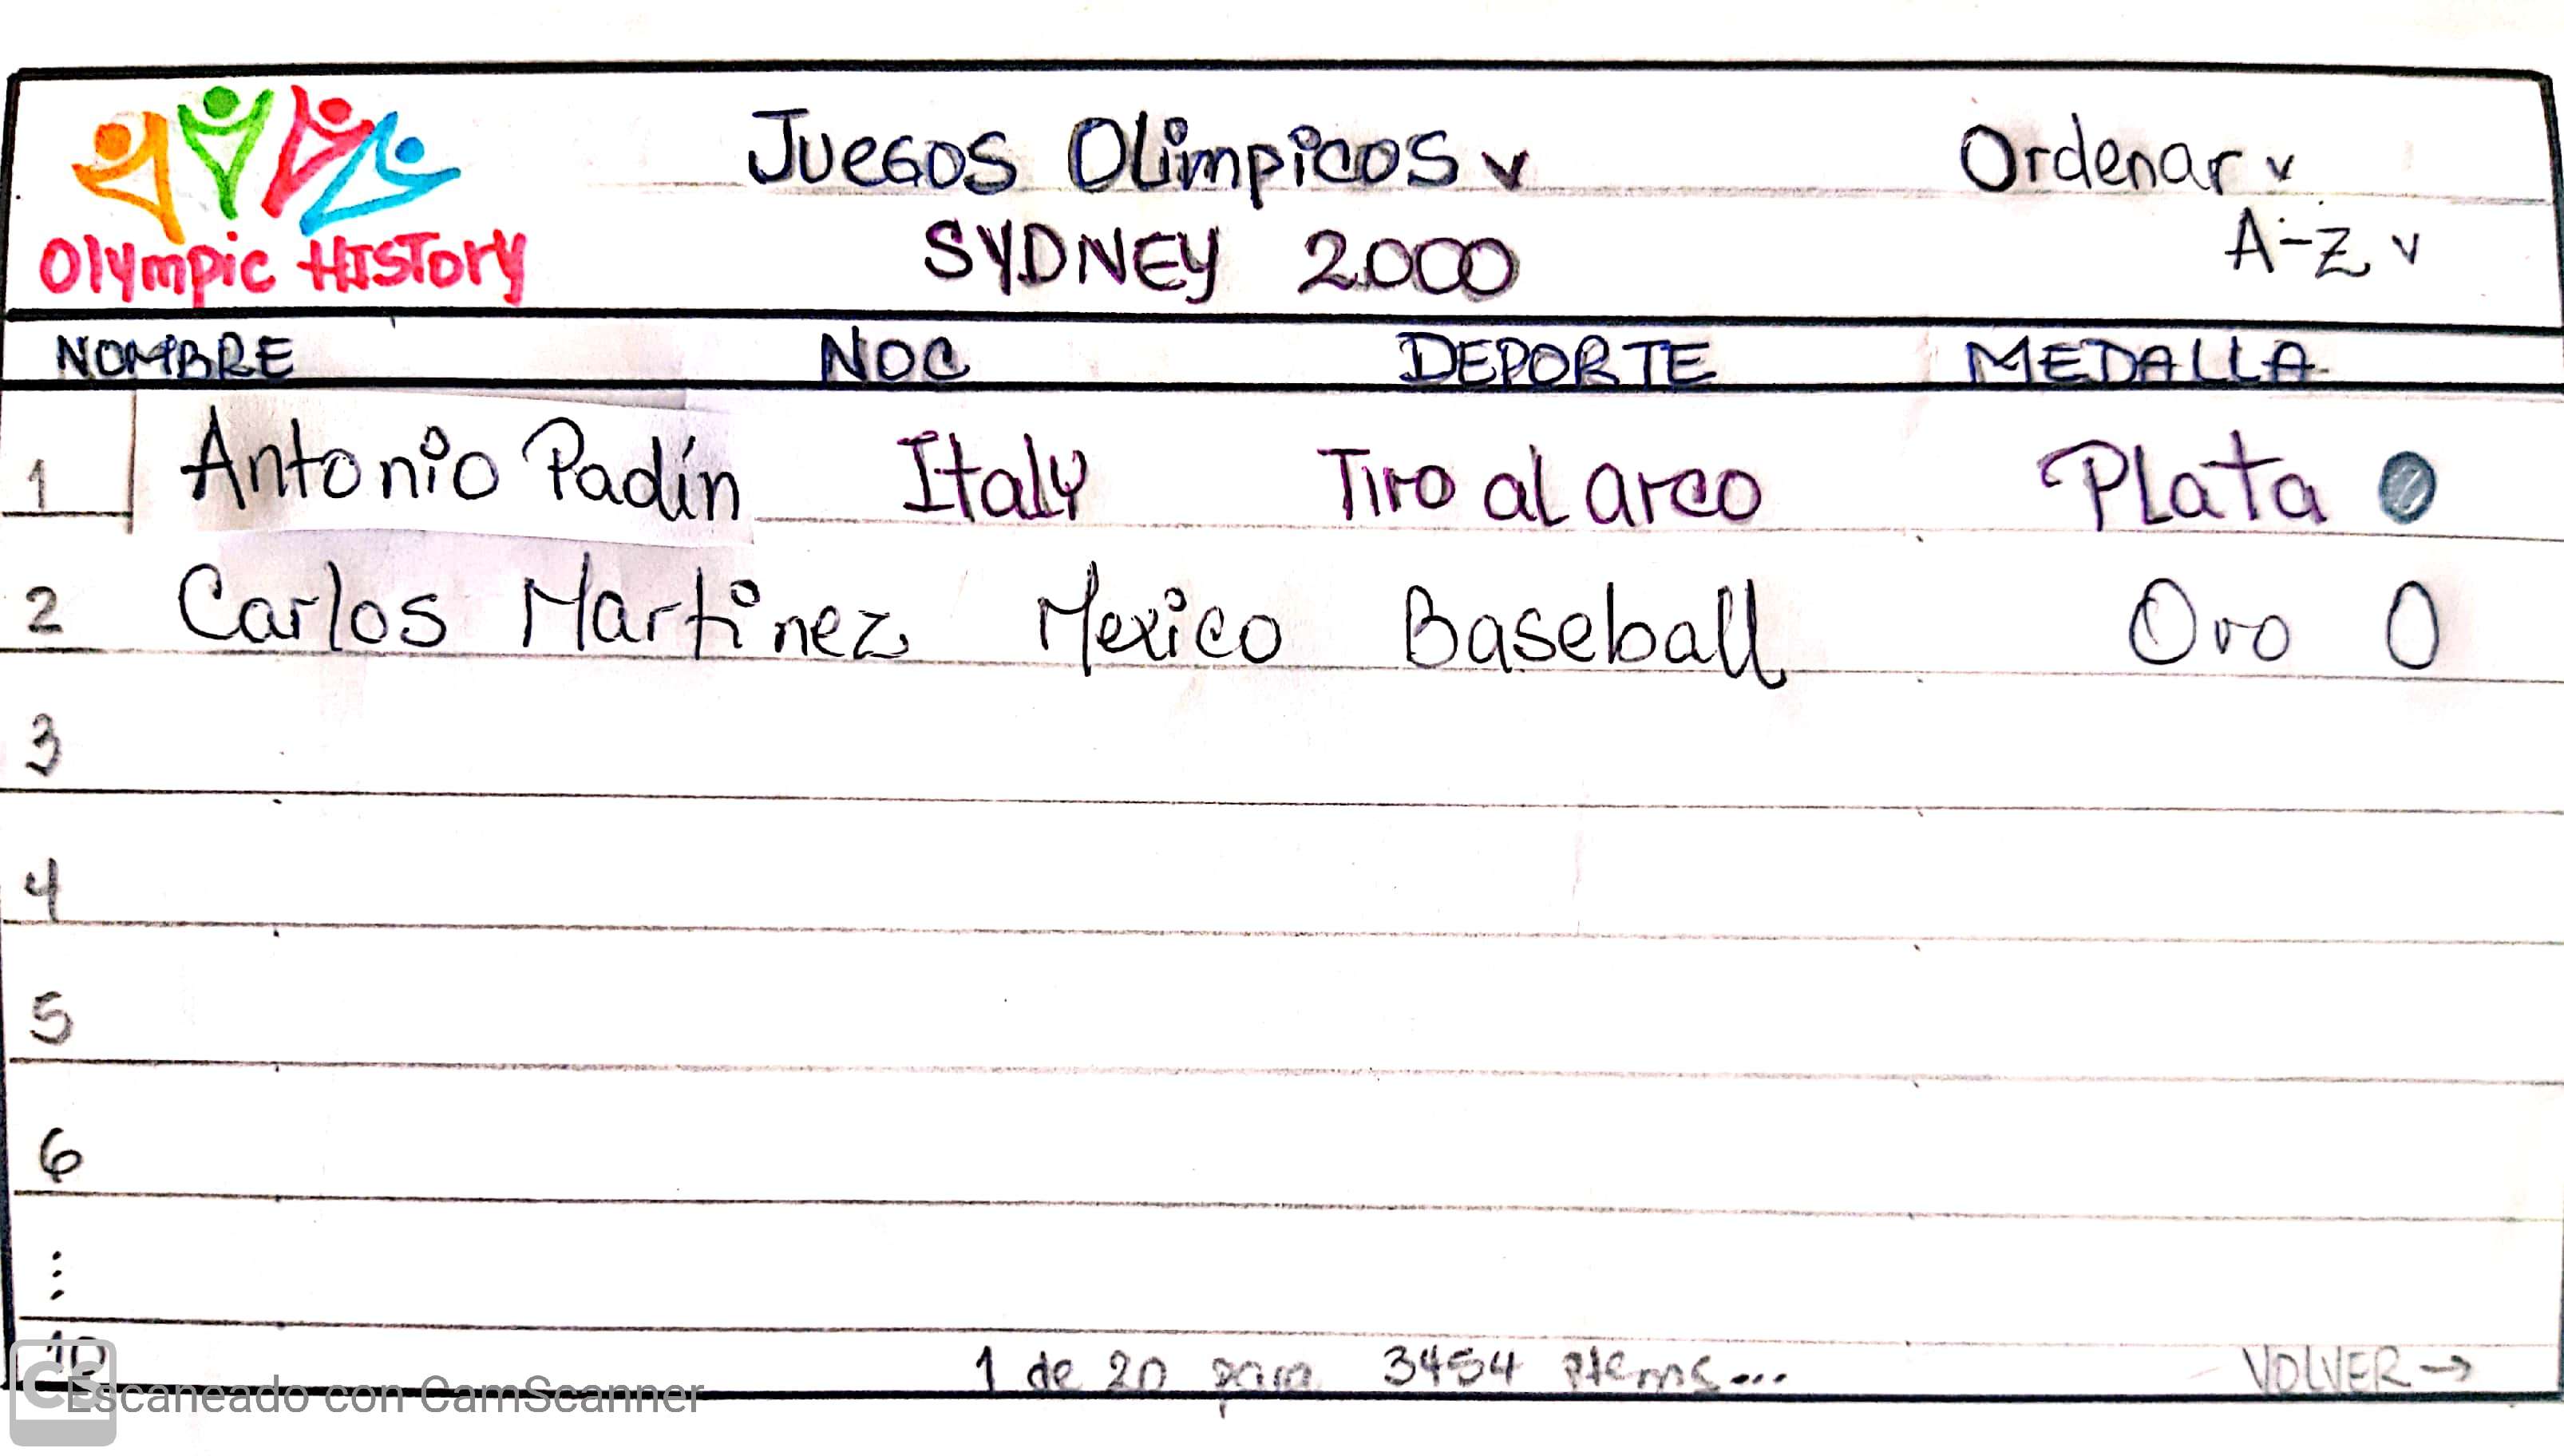 Olympic HISTORY
JUEGOS OLimpicos v
SYDNEY 2000
Ordenar v
A-Z v
NOMBRE NOC DEPORTE MEDALLA
1 Antonio Padín Italy Tiro al arco PLata
2 Carlos Martinez Mexico Baseball Oro
3
4
5
6
10 1 de 20 para 3454 items... VOLVER →
CS Escaneado con CamScanner